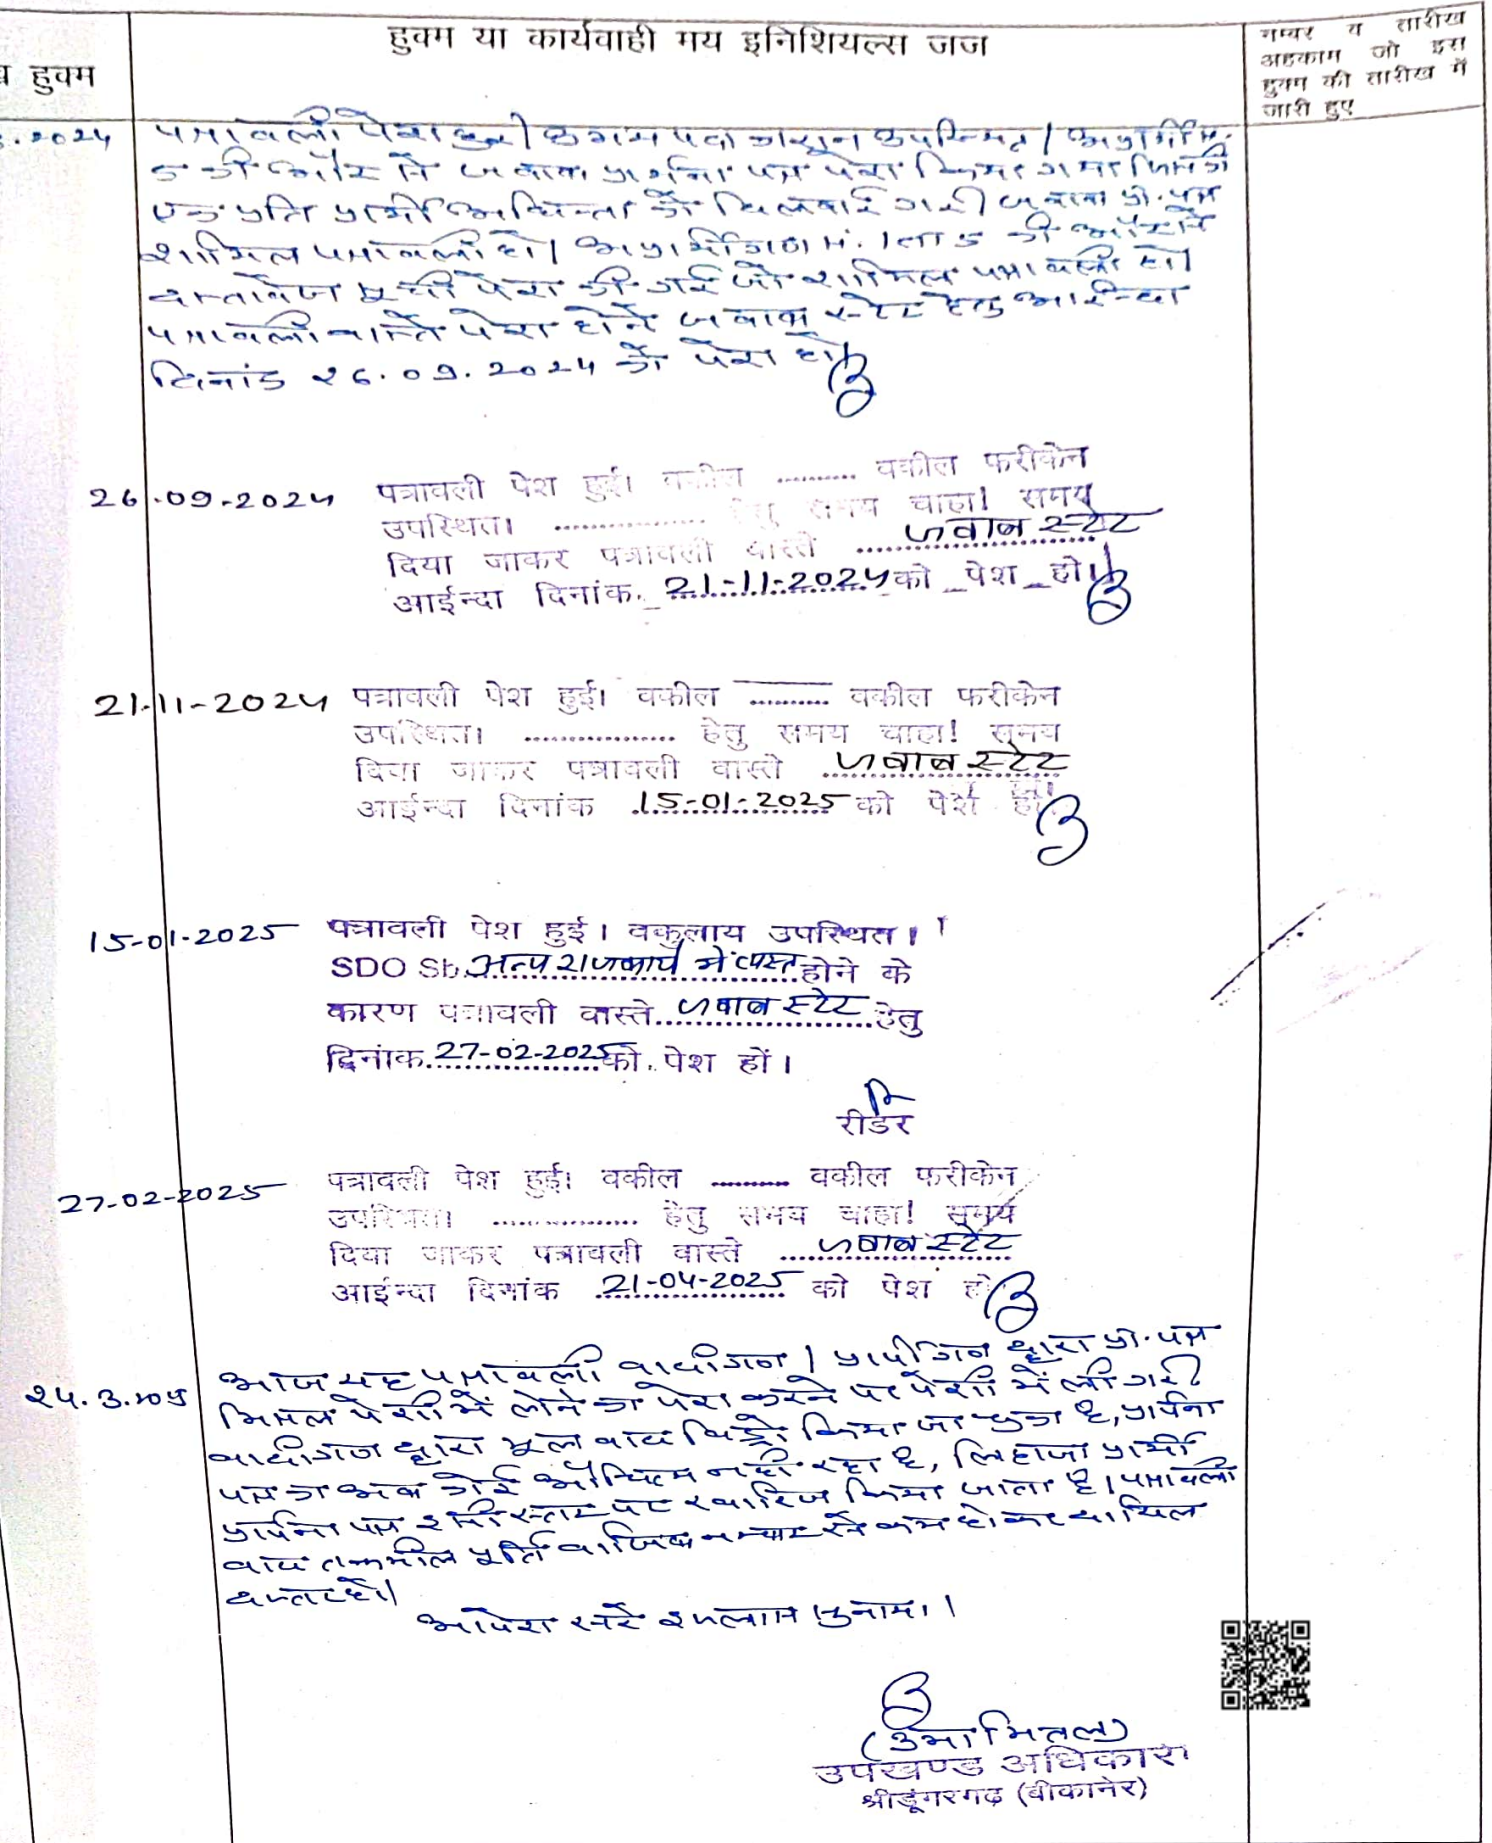 हुक्म
हुक्म या कार्यवाही मय इनिशियल्स जज
नम्बर व तारीख
अहकाम जो इस
हुक्म की तारीख में
जारी हुए
.2024 पत्रावली पेश हुई। उपस्थित। अप्रार्थी सं.
5 की ओर से जवाब प्रार्थना पत्र पेश किया गया जिसकी
एक प्रति प्रार्थी अधिवक्ता को दिलवाई गयी। जवाब प्रा. पत्र
शामिल पत्रावली हो। अप्रार्थीगण सं. 1 ता 5 की ओर से
दस्तावेज सूची पेश की गई जो शामिल पत्रावली हो।
पत्रावली वास्ते पेश होने जवाब स्टेट हेतु आईन्दा
दिनांक 26.09.2024 को पेश हो।
26-09-2024 पत्रावली पेश हुई। वकील .......... वकील फरीकेन
उपस्थित। .................. हेतु समय चाहा! समय
दिया जाकर पत्रावली वास्ते जवाब स्टेट
आईन्दा दिनांक. 21-11-2024 को पेश हो।
21-11-2024 पत्रावली पेश हुई। वकील .......... वकील फरीकेन
उपस्थित। .................. हेतु समय चाहा! समय
दिया जाकर पत्रावली वास्ते जवाब स्टेट
आईन्दा दिनांक 15-01-2025 को पेश हो।
15-01-2025 पत्रावली पेश हुई। वकुलाय उपस्थित।
SDO Sb. अन्य राजकार्य में व्यस्त होने के
कारण पत्रावली वास्ते जवाब स्टेट हेतु
दिनांक 27-02-2025 को पेश हों।
रीडर
27-02-2025 पत्रावली पेश हुई। वकील .......... वकील फरीकेन
उपस्थित। .................. हेतु समय चाहा! समय
दिया जाकर पत्रावली वास्ते जवाब स्टेट
आईन्दा दिनांक 21-04-2025 को पेश हो
आज यह पत्रावली वादीगण / प्रार्थीगण द्वारा प्रा. पत्र
24.3.2025 मिसल पेशी में लेने का पेश करने पर पेशी में ली गयी
वादीगण द्वारा मूल वाद विड्रो किया जा चुका है, प्रार्थना
पत्र का अब कोई औचित्य नहीं रहा है, लिहाजा प्रार्थी
प्रार्थना पत्र इसी स्तर पर खारिज किया जाता है। पत्रावली
बाद तकमील पूर्ति नम्बर से कम होकर दाखिल
दफ्तर हो।
आदेश सरे इजलास सुनाया।
(उमा मित्तल)
उपखण्ड अधिकारी
श्रीडूंगरगढ़ (बीकानेर)